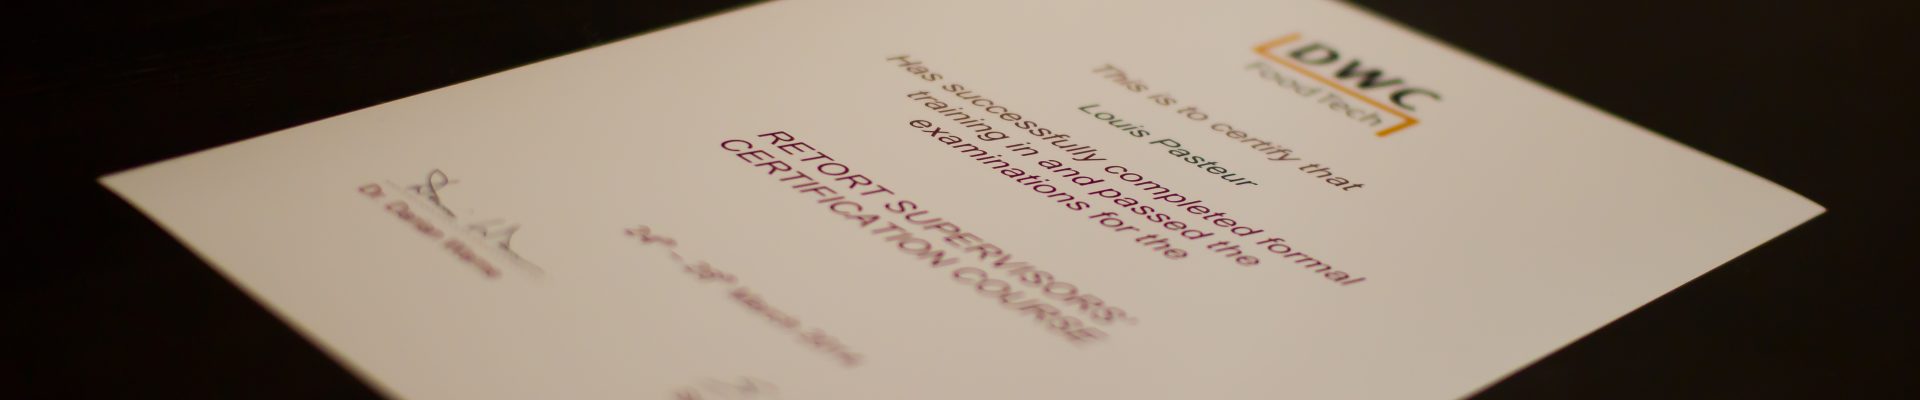 DWC
Food Tech
This is to certify that
Louis Pasteur
Has successfully completed formal
training in and passed the
examinations for the
RETORT SUPERVISORS'
CERTIFICATION COURSE
March
Dr. Damian